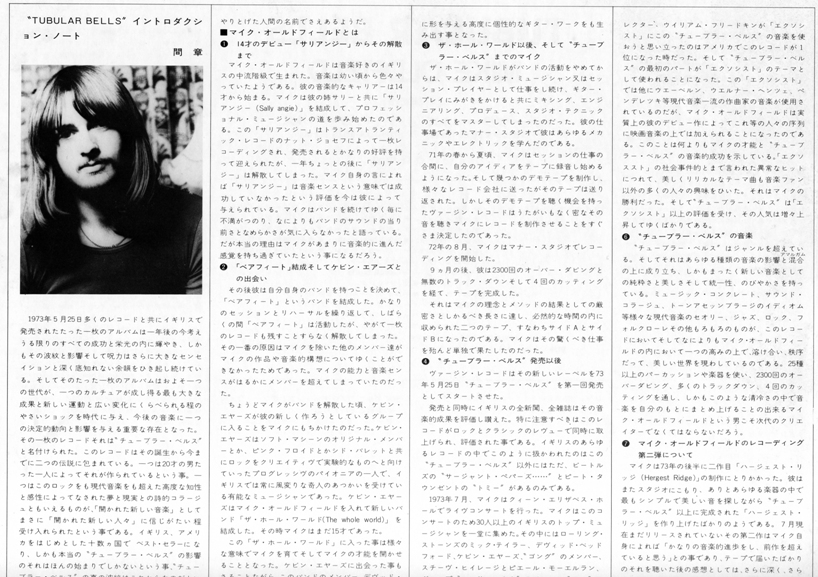 "TUBULAR BELLS" イントロダクシ
ョン・ノート
間 章
1973年5月25日多くのレコードと共にイギリスで
発売されたたった一枚のアルバムは一年後の今考え
うる限りのすべての成功と栄光の内に輝やき、しか
もその波紋と影響そして呪力はさらに大きなセンセ
イションと深く底知れない余韻をひき起し続けてい
る。そしてそのたった一枚のアルバムはおよそ一つ
の世代が、一つのカルチュアが成し得る最も大きな
成果と新しい運動と広い変化にくらべられる程の
やさしいショックを時代に与え、今後の音楽に一つ
の決定的動向と影響を与える重要な存在となった。
その一枚のレコードそれは"チューブラー・ベルズ"
と名付けられた。このレコードはその誕生から今ま
でに二つの伝説に包まれている。一つは20才の男た
った一人によってそれが作られているという事。一
つはこのロックをも現代音楽をも超えた高度な知性
と感性によってなされた夢と現実との詩的コラージ
ュともいえるものが、「開かれた新しい音楽」として
まさに「開かれた新しい人々」に信じがたい程
受け入れられたという事である。イギリス、アメリ
カをはじめとした十数ヵ国で ベスト・セラーにな
り、しかも本当の"チューブラー・ベルズ"の影響
のそれはほんの始まりでしかないという事、"チュー
やりとげた人間の名前でさえあるようだ。
■マイク・オールドフィールドとは
❶ 14才のデビュー「サリアンジー」からその解散
まで
マイク・オールドフィールドは音楽好きのイギリ
スの中流階級で生まれた。音楽は幼い頃から色々や
っていたようである。彼の音楽的なキャリアーは14
才から始まる。マイクは彼の姉サリーと共に「サリ
アンジー(Sally angie)」を結成して、プロフェッシ
ョナル・ミュージシャンの道を歩み始めたのであ
る。この「サリアンジー」はトランスアトランティ
ック・レコードのナット・ジョセフによって一枚レ
コーディングされ、発売されるとかなりの好評を持
って迎えられたが、一年ちょっとの後に「サリアン
ジー」は解散してしまった。マイク自身の言によれ
ば「サリアンジー」は音楽センスという意味では成
功していなかったという評価を今は彼によって
与えられている。マイクはバンドを続けてゆく毎に
不満がつのり、なによりもバンドのサウンドの当り
前さとなめらかさが気に入らなかったと語っている。
だが本当の理由はマイクがあまりに音楽的に進んだ
感覚を持ち過ぎていたという事になるだろう。
❷ 「ベアフィート」結成そしてケビン・エアーズと
の出会い
その後彼は自分自身のバンドを持つことを決めて、
「ベアフィート」というバンドを結成した。かなり
のセッションとリハーサルを繰り返して、しばら
くの間「ベアフィート」は活動したが、やがて一枚
のレコードも残すことすらなく解散してしまった。
その一番の原因はマイクを除いた他のメンバー達が
マイクの作品や音楽的構想についてゆくことがで
きなかったためであった。マイクの能力と音楽セン
スがはるかにメンバーを超えてしまっていたのだっ
た。
ちょうどマイクがバンドを解散した頃、ケビン・
エアーズが彼の新しく作ろうとしているグループ
に入ることをマイクにもちかけたのだった。ケビン・
エアーズはソフト・マシーンのオリジナル・メンバ
ーとか、ピンク・フロイドとかシド・バレットと共
にロックをクリエイティヴで実験的なものへと向け
ていったプログレッシブのパイオニアの一人で、イ
ギリスでは常に風変りな奇人のあつかいを受けてい
る有能なミュージシャンであった。ケビン・エヤー
ズはマイク・オールドフィールドを入れて新しいバ
ンド「ザ・ホール・ワールド(The whole world)」を
結成した。その時マイクはまだ15才であった。
この「ザ・ホール・ワールド」に入った事は様々
な意味でマイクを育てそしてマイクの才能を開かせ
ることとなった。ケビン・エアーズに出会った事も
に形を与える高度に個性的なギター・ワークをも生
み出す事となった。
❸ ザ・ホール・ワールド以後、そして"チューブ
ラー・ベルズ"までのマイク
ザ・ホール・ワールドがバンドの活動をやめてか
らは、マイクはスタジオ・ミュージシャン又はセッ
ション・プレイヤーとして仕事をし続け、ギター・
プレイにみがきをかけると共にミキシング、エンジ
ニアリング、プロデュース、スタジオ・テクニック
のすべてをマスターしてしまったのだった。彼の仕
事場であったマナー・スタジオで彼はあらゆるメカ
ニックやエレクトリックを学んだのである。
71年の春から夏頃、マイクはセッションの仕事の
合間に、自分のアイディアをテープに録音し始める
ようになった。そして幾つかのデモテープを制作し、
様々なレコード会社に送ったがそのテープは送り
返された。しかしそのデモテープを聴く機会を持っ
たヴァージン・レコードはうたがいもなく密なその
音を聴きマイクにレコードを制作させることをすぐ
さま決定したのであった。
72年の8月、マイクはマナー・スタジオでレコー
ディングを開始した。
9ヵ月の後、彼は2300回のオーバー・ダビングと
無数のトラック・ダウンそして4回のカッティング
を経て、テープを完成した。
それはマイクの理念とメソッドの結果としての厳
密さとしかるべき長さに達し、必然的な時間の内に
収められた二つのテープ、すなわちサイドAとサイ
ドBになったのである。マイクはその驚くべき仕事
を殆んど単独で果したのだった。
❹ "チューブラー・ベルズ"発売以後
ヴァージン・レコードはその新しいレーベルを73
年5月25日"チューブラー・ベルズ"を第一回発売
としてスタートさせた。
発売と同時にイギリスの全新聞、全雑誌はその音
楽的成果を評価し讃えた。特に注意すべきはこのレ
コードがロックとクラシックのレヴューで同時に取
上げられ、評価された事である。イギリスのあらゆ
るレコードの中でこのように扱かわれたのはこの
"チューブラー・ベルズ"以外にはただ、ビートル
ズの"サージャント・ペパーズ……"とピート・タ
ウンゼントの"トミー"があるのみである。
1973年7月、マイクはクィーン・エリザベス・ホ
ールでライヴコンサートを行った。マイクはこのコ
ンサートのため30人以上のイギリスのトップ・ミュ
ージシャンを一堂に集めた。その中にはローリング・
ストーンズのミック・テイラー、デヴィッド・ベッド
フォード、ケビン・エヤーズ、"ゴング"のメンバー、
スチーヴ・ヒイレージとピエール・モエールラン、
レクター、ウイリアム・フリードキンが「エクソシ
スト」にこの"チューブラー・ベルズ"の音楽を使
おうと思い立ったのはアメリカでこのレコードが1
位になった時だった。そして"チューブラー・ベルズ
"の最初のパートが「エクソシスト」のテーマと
して使われることになった。この「エクソシスト」
では他にウエーベルン、ウエルナー・ヘンツェ、ペ
ンデレツキ等現代音楽一流の作曲家の音楽が使用さ
れているのだが、マイク・オールドフィールドは実
質上の彼のデビュー作によってこれ等の人々の序列
に映画音楽の上では加えられることになったのであ
る。このことは何よりもマイクの才能と"チューブ
ラー・ベルズ"の音楽的成功を示している。「エクソ
シスト」の社会事件的とまで言われた異常なヒット
につれて、美しくリリカルなテーマ曲も音楽ファン
以外の多くの人々の興味をひいた。それはマイクの
勝利だった。そして"チューブラー・ベルズ"は「エ
クソシスト」以上の評価を受け、その人気は増々上
昇してゆくばかりである。
❻ "チューブラー・ベルズ"の音楽
"チューブラー・ベルズ"はジャンルを超えてい
る。そしてそれはあらゆる種類の音楽の影響と混合
アマルガム
の上に成り立ち、しかもまったく新しい音楽として
の純粋さと美しさそして統一性、のびやかさを持っ
ている。ミュージック・コンクレート、サウンド・
コラージュ、トーンアセンブラージのイディオム
等様々な現代音楽のセオリー、ジャズ、ロック、フ
ォルクローレその他もろもろのものが、このレコー
ドにおいてそしてなによりもマイク・オールドフィ
ールドの内において一つの高みの上で、溶け合い、秩序
だって、美しい世界を現わしているのである。25種
以上のパーカッションや楽器を使い、2300回のオー
バーダビング、多くのトラックダウン、4回のカッ
ティングを通し、しかもこのような清冷さの中で音
楽を自分のもとにまとめ上げることの出来るマイ
ク・オールドフィールドという男こそ次代のクリエ
イターでなくてはならないだろう。
❼ マイク・オールドフィールドのレコーディング
第二弾について
マイクは73年の後半に二作目「ハージェスト・リ
ッジ(Hergest Ridge)」の制作にとりかかった。彼は
またスタジオにこもり、ありとあらゆる楽器の中で
最もシンプルで美しい音を探しながら"チューブ
ラー・ベルズ"以上に完成された「ハージェスト・
リッジ」を作り上げたばかりのようである。7月現
在まだリリースされていないその第二作はマイク自
身によれば「かなりの音楽的進歩をし、前作を超え
ていると思う」との事であり、テープで届いたばかり
のそれを聴いた後の感想としては、さらに深く、さら